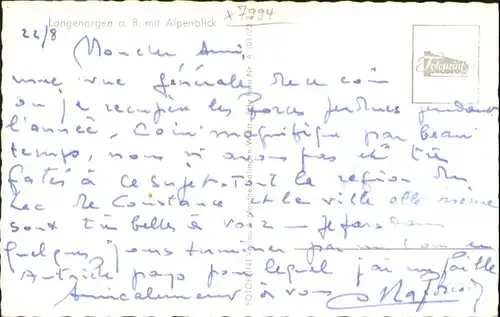 Langenargen a. B. mit Alpenblick
x 7994
22/8
Mon cher Ami,
une vue générale de ce coin
où je récupère les forces perdues pendant
l'année. Coin magnifique par beau
temps, nous n'avons pas été très
gatés à ce sujet. Tout la région du
Lac de Constance et la ville elle même
sont très belles à voir — Je
quelques jours terminer par un en
Autriche pays pour lequel j'ai un faible
Amicalement à vous